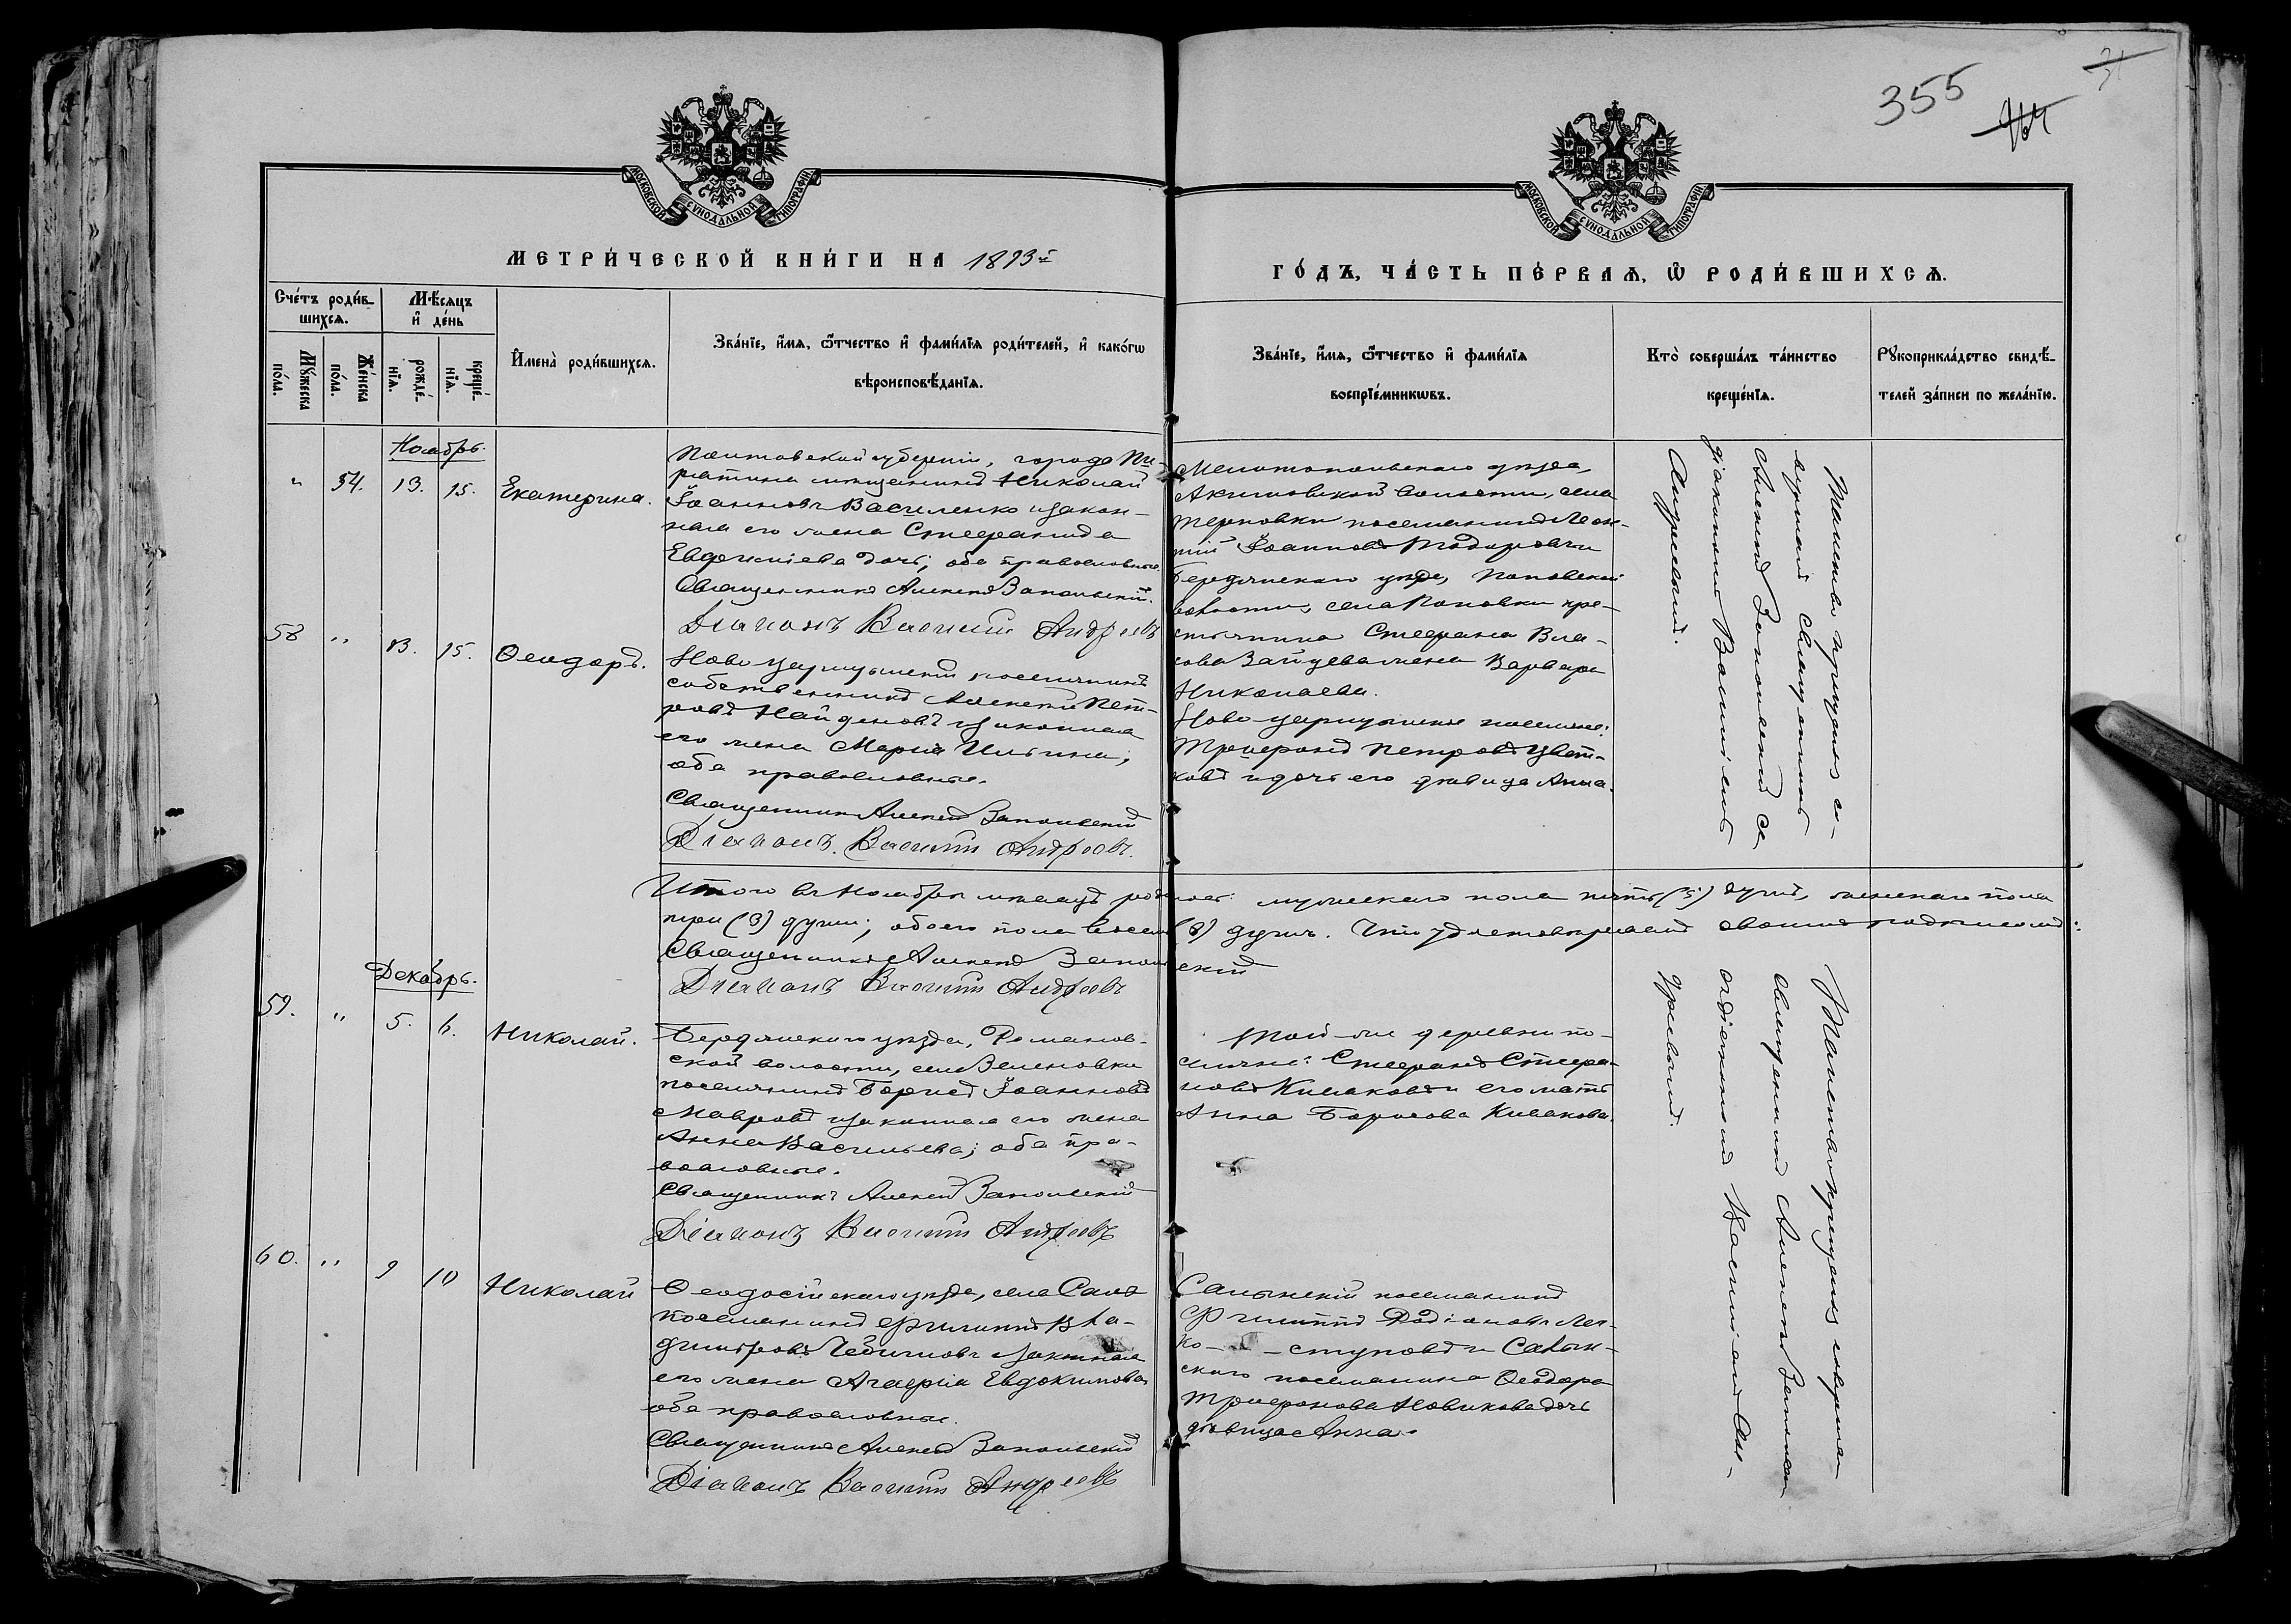 355
МОСКОВСКОЙ СѴНОДАЛЬНОЙ ТИПОГРАФІИ
МОСКОВСКОЙ СѴНОДАЛЬНОЙ ТИПОГРАФІИ
МЕТРИ́ЧЕСКОЙ КНИ́ГИ НА 1893й
ГО́ДЪ, ЧА́СТЬ ПЕ́РВАѦ, Ѽ РОДИ́ВШИХСѦ.
Сче́тъ роди́в-
шихсѧ.
Мѣ́сяцъ
и҆ де́нь
Мꙋ́жеска
по́ла.
Же́нска
по́ла.
рожде́-
нїѧ.
креще́-
нїѧ.
И҆мена̀ роди́вшихсѧ.
Зва́нїе, и҆́мѧ, ѻ҆́тчество и҆ фами́лїѧ роди́телей, и҆ како́гѡ
вѣроисповѣ́данїѧ.
Зва́нїе, и҆́мѧ, ѻ҆́тчество и҆ фами́лїѧ
воспрїе́мникѡвъ.
Кто̀ соверша́лъ та́инство
креще́нїѧ.
Рꙋкоприкла́дство свидѣ́-
телей за́писи по жела́нїю.
Ноябрь.
" 54. 13. 15. Екатерина.
Полтавской губерніи, города Пи-
рятина мѣщанинъ Николай
Іоанновъ Василенко и закон-
ная его жена Стефанида
Евдокіева дочь; оба православные.
Священникъ Алексій Запольскій.
Діаконъ Василій Андреевъ
Мелитопольскаго уѣзда,
Акимовской волости, села
Терновки поселянинъ Леон-
тій Іоанновъ Тодоровъ и
Бердянскаго уѣзда, Поповской
волости, села Поповки кре-
стьянина Стефана Вла-
сова Зайцева жена Варвара
Николаева.
Таинство крещенія со-
вершалъ священникъ
Алексій Запольскій съ
діакономъ Василіемъ
Андреевымъ.
58 " 13. 15. Ѳеодоръ.
Ново-царицынскій поселянинъ
собственникъ Алексій Пет-
ровъ Найденовъ и законная
его жена Марія Ильина;
оба православные.
Священникъ Алексій Запольскій
Діаконъ. Василій Андреевъ.
Ново-царицынскіе поселяне:
Трифонъ Петровъ Цвѣт-
ковъ и дочь его дѣвица Анна.
Итого въ Ноябрѣ мѣсяцѣ родилось: мужескаго пола пять (5) душъ, женскаго пола
три (3) души; обоего пола восемь (8) душъ. Что удостовѣряемъ своимъ подписомъ:
Священникъ Алексій Запольскій
Діаконъ Василій Андреевъ
Декабрь.
59. " 5. 6. Николай.
Бердянскаго уѣзда, Романов-
ской волости, села Зеленовки
поселянинъ Борисъ Іоанновъ
Мавровъ и законная его жена
Анна Васильева; оба пра-
вославные.
Священникъ Алексій Запольскій
Діаконъ Василій Андреевъ
Той-же деревни по-
селяне: Стефанъ Стефа-
новъ Кишковъ и его мать
Анна Борисова Кишкова.
Таинство крещенія совершалъ
священникъ Алексій Запольскій
съ діакономъ Василіемъ Ан-
дреевымъ.
60. " 9 10 Николай
Ѳеодосійскаго уѣзда, села Салы
поселянинъ Филиппъ Вла-
диміровъ и законная
его жена Агафія Евдокимова
оба православные.
Священникъ Алексій Запольскій
Діаконъ Василій Андреевъ
Салынскій поселянинъ
Филиппъ Родіоновъ Лег-
ко- -ступовъ и Салын-
скаго поселянина Ѳеодора
Трифонова Новикова дочь
дѣвица Анна.